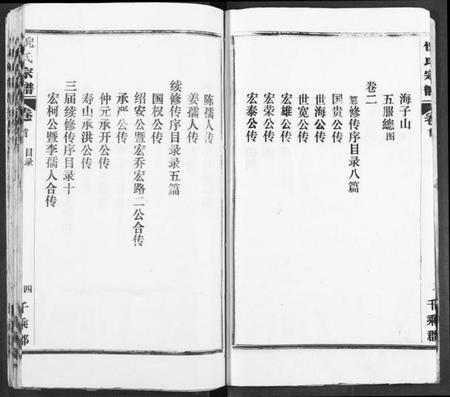 海子山
五服總图
卷二
篡修传序目录八篇
国贵公传
世海公传
世宽公传
宏雄公传
宏荣公传
宏泰公传
千乘郡
陈孺人传
姜孺人传
续修传序目录录五篇
国权公传
绍安公暨宏乔宏路二公合传
承严公传
仲元承开公传
寿山承洪公传
三届续修传序目录十
宏柯公暨李孺人合传
倪氏宗谱
卷首
目录
四
千乘郡